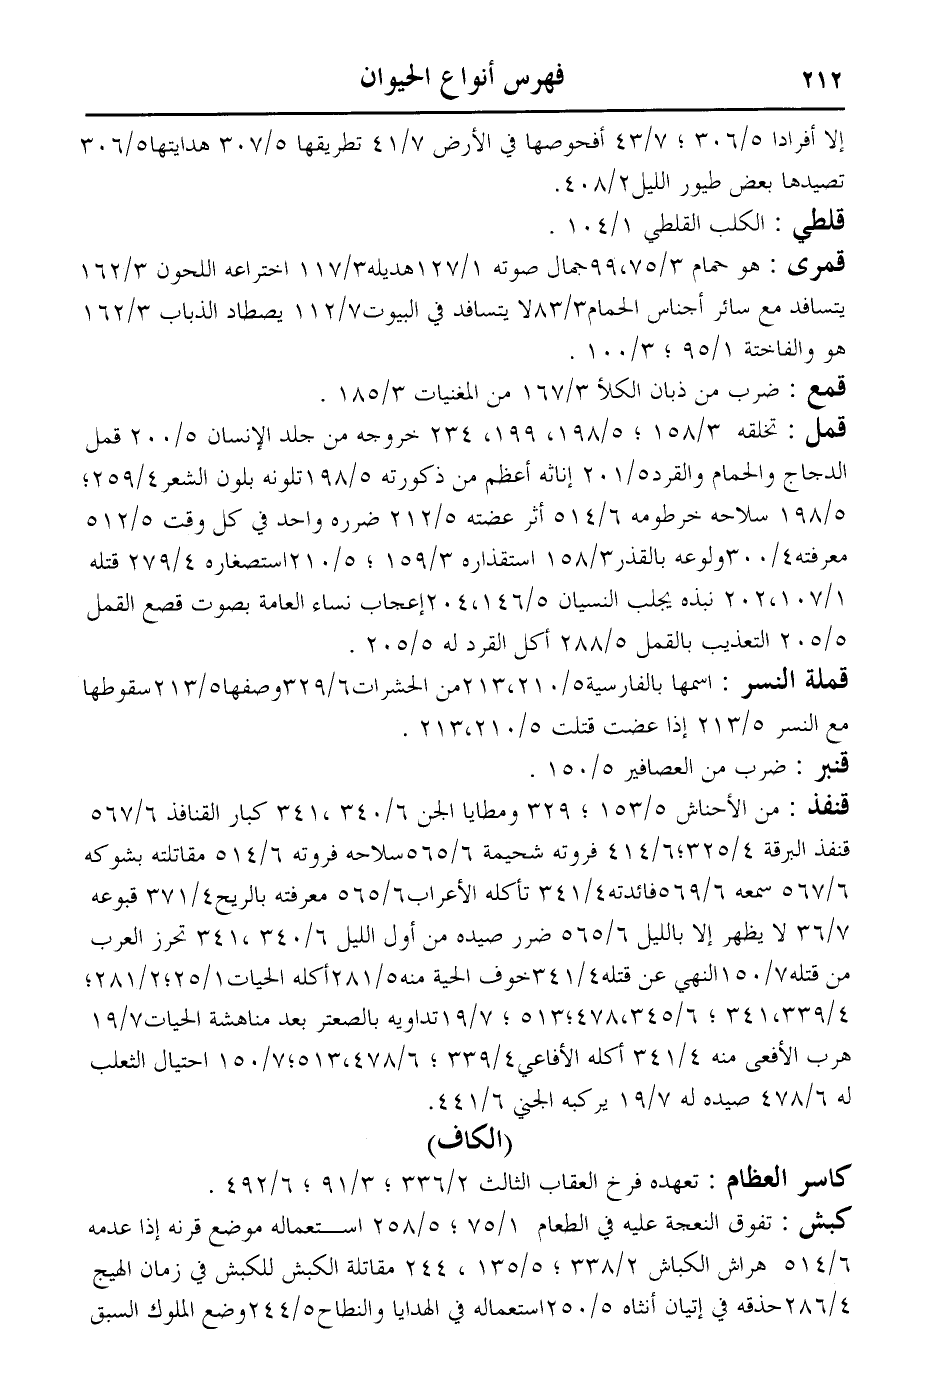 ٢١٢ فهرس أنواع الحيوان
إلا أفرادا ٣٠٦/٥ ؛ ٤٣/٧ أفحوصها في الأرض ٤١/٧ تطريقها ٣٠٧/٥ هدايتها٣٠٦/٥
تصيدها بعض طيور الليل٤٠٨/٢.
قلطي : الكلب القلطي ١٠٤/١ .
قمرى : هو حمام ٩٩،٧٥/٣جمال صوته ١٢٧/١هديله١١٧/٣ اختراعه اللحون ١٦٢/٣
يتسافد مع سائر أجناس الحمام٨٣/٣لا يتسافد في البيوت١١٢/٧ يصطاد الذباب ١٦٢/٣
هو والفاختة ٩٥/١ ؛ ١٠٠/٣ .
قمع : ضرب من ذبان الكلأ ١٦٧/٣ من المغنيات ١٨٥/٣ .
قمل : تخلقه ١٥٨/٣ ؛ ١٩٨/٥، ١٩٩، ٢٣٤ خروجه من جلد الإنسان ٢٠٠/٥ قمل
الدجاج والحمام والقرد٢٠١/٥ إناثه أعظم من ذكورته ١٩٨/٥تلونه بلون الشعر٢٥٩/٤؛
١٩٨/٥ سلاحه خرطومه ٥١٤/٦ أثر عضته ٢١٢/٥ ضرره واحد في كل وقت ٥١٢/٥
معرفته٣٠٠/٤ولوعه بالقذر١٥٨/٣ استقذاره ١٥٩/٣ ؛ ٢١٠/٥استصغاره ٢٧٩/٤ قتله
٢٠٢،١٠٧/١ نبذه يجلب النسيان ٢٠٤،١٤٦/٥إعجاب نساء العامة بصوت قصع القمل
٢٠٥/٥ التعذيب بالقمل ٢٨٨/٥ أكل القرد له ٢٠٥/٥ .
قملة النسر : اسمها بالفارسية٢١٣،٢١٠/٥من الحشرات٣٢٩/٦وصفها٢١٣/٥سقوطها
مع النسر ٢١٣/٥ إذا عضت قتلت ٢١٣،٢١٠/٥ .
قنبر : ضرب من العصافير ١٥٠/٥ .
قنفذ : من الأحناش ١٥٣/٥ ؛ ٣٢٩ ومطايا الجن ٣٤٠/٦ ،٣٤١ كبار القنافذ ٥٦٧/٦
قنفذ البرقة ٣٢٥/٤؛٤١٤/٦ فروته شحيمة ٥٦٥/٦سلاحه فروته ٥١٤/٦ مقاتلته بشوكه
٥٦٧/٦ سمعه ٥٦٩/٦فائدته٣٤١/٤ تأكله الأعراب٥٦٥/٦ معرفته بالريح٣٧١/٤ قبوعه
٣٦/٧ لا يظهر إلا بالليل ٥٦٥/٦ ضرر صيده من أول الليل ٣٤٠/٦ ،٣٤١ تحرز العرب
من قتله١٥٠/٧النهي عن قتله٣٤١/٤خوف الحية منه٢٨١/٥أكله الحيات٢٥/١؛٢٨١/٢؛
٣٤١،٣٣٩/٤ ؛ ٤٧٨،٣٤٥/٦؛٥١٣ ؛ ١٩/٧تداويه بالصعتر بعد مناهشة الحيات١٩/٧
هرب الأفعى منه ٣٤١/٤ أكله الأفاعي٣٣٩/٤ ؛ ٥١٣،٤٧٨/٦؛١٥٠/٧ احتيال الثعلب
له ٤٧٨/٦ صيده له ١٩/٧ يركبه الجني ٤٤١/٦.
(الكاف)
كاسر العظام : تعهده فرخ العقاب الثالث ٣٣٦/٢ ؛ ٩١/٣ ؛ ٤٩٢/٦ .
كبش : تفوق النعجة عليه في الطعام ٧٥/١ ؛ ٢٥٨/٥ استعماله موضع قرنه إذا عدمه
٥١٤/٦ هراش الكباش ٣٣٨/٢ ؛ ١٣٥/٥ ، ٢٤٤ مقاتلة الكبش للكبش في زمان الهيج
٢٨٦/٤حذقه في إتيان أنثاه ٢٥٠/٥استعماله في الهدايا والنطاح٢٤٤/٥وضع الملوك السبق